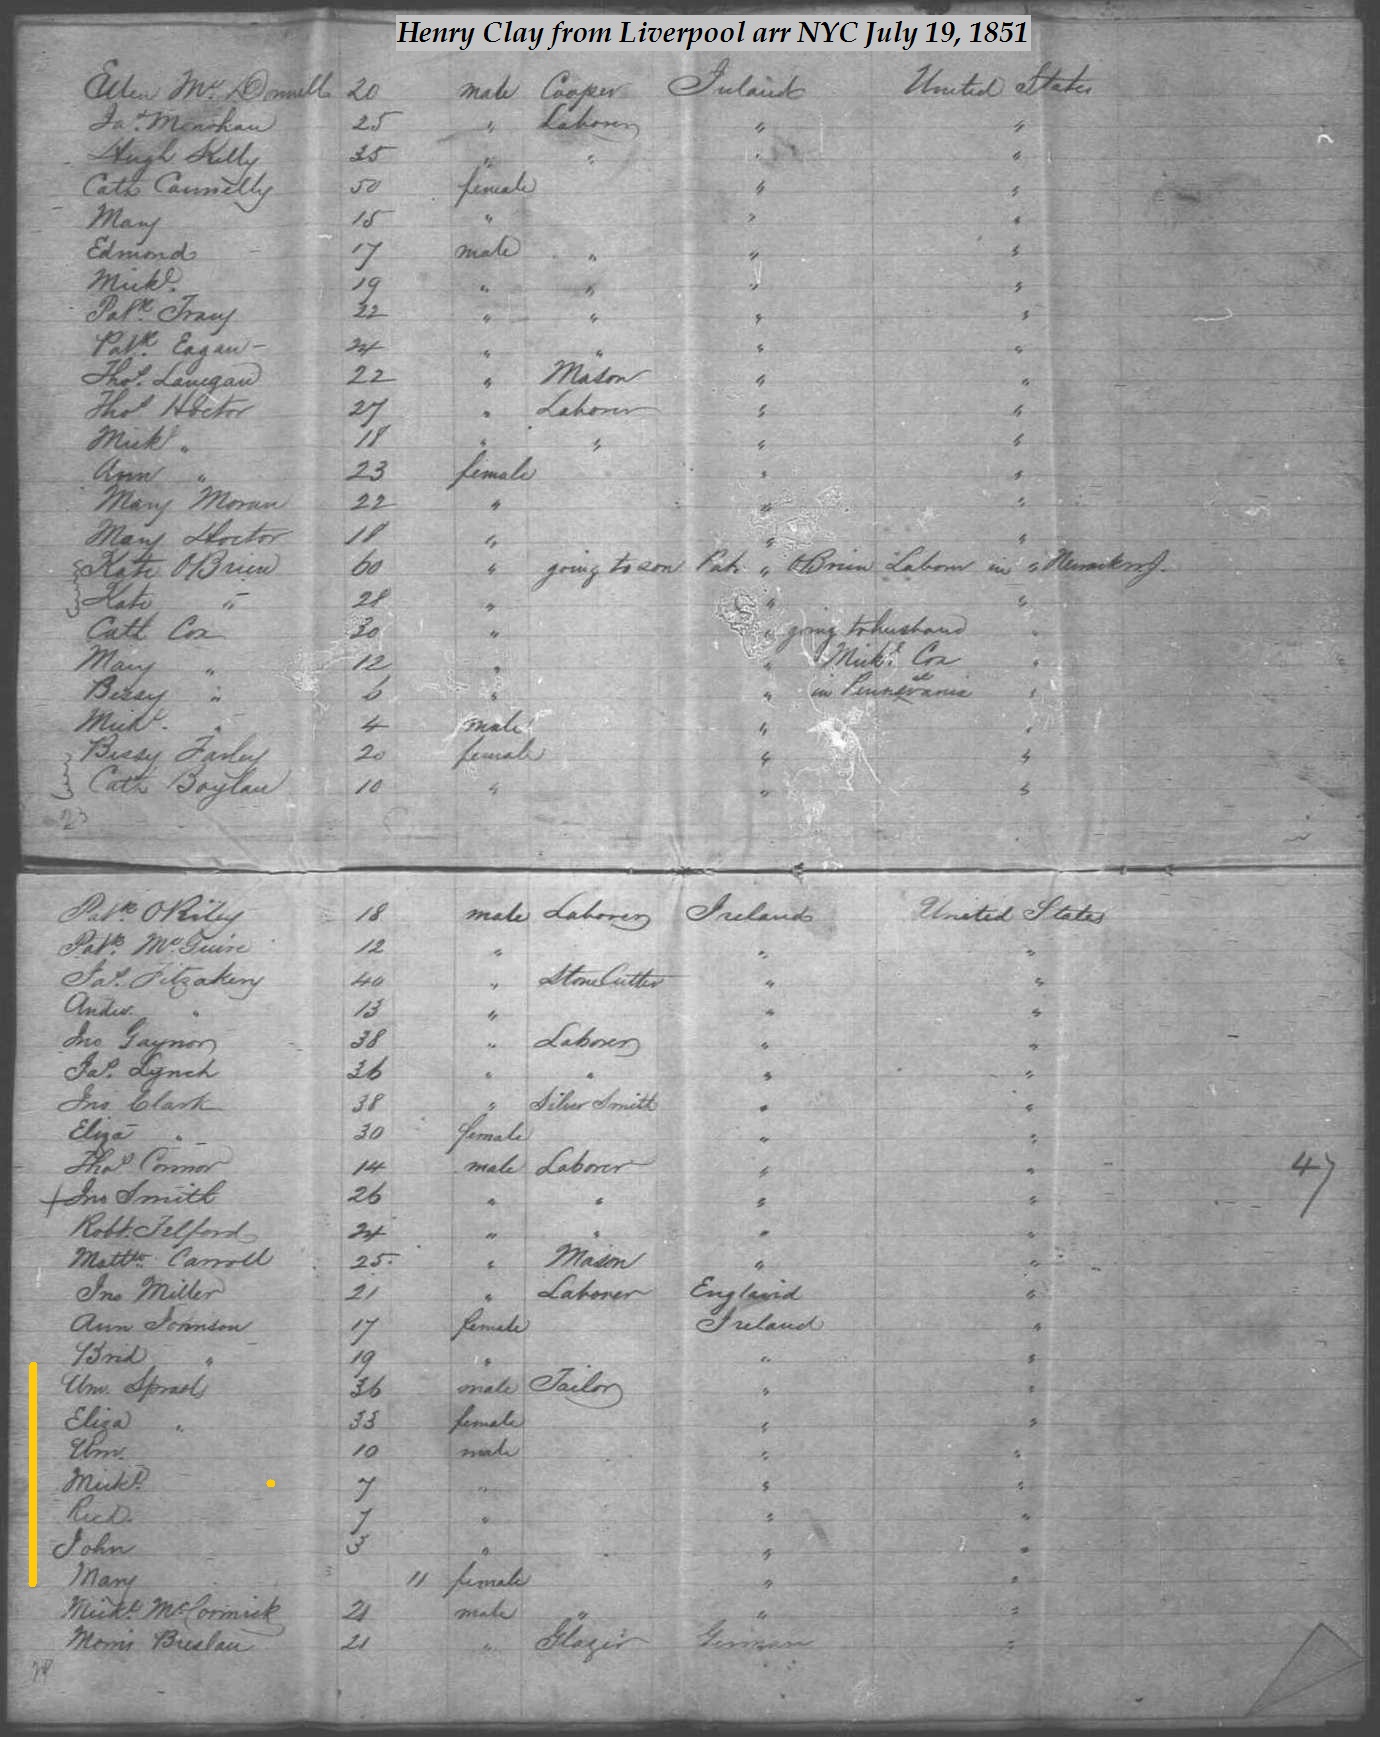 Henry Clay from Liverpool arr NYC July 19, 1851
Ellen Mc Donnell 20 male Cooper Ireland United States
Jas. Monahan 25 " Laborer " "
Hugh Kelly 35 " " " "
Cath Connelly 50 female " "
Mary 15 " " "
Edmond 17 male " " "
Mickl. 19 " " " "
Patk. Tracy 22 " " " "
Patk. Eagan 24 " " " "
Thos. Lanegan 22 " Mason " "
Thos Hoctor 27 " Laborer " "
Mickl " 18 " " " "
Ann " 23 female " "
Mary Moran 22 " " "
Mary Hoctor 18 " " "
Kate OBrien 60 " going to son Pat " OBrien Laborer in " Newark NJ.
Kate " 28 " " "
Cath Cox 30 " " going to husband "
Mary " 12 " " Mickl. Cox "
Bessy " 6 " " in "
Mickl. " 4 male " "
Bessy Farley 20 female " "
Cath Boylan 10 " " "
23
Patk ORiley 18 male Laborer Ireland United States
Patk. McGuire 12 " " "
Jas. 40 " Stone Cutter " "
Andw. " 13 " " "
Jno Gaynor 38 " Laborer " "
Jas. Lynch 36 " " " "
Jno. Clark 38 " Silver Smith " "
Eliza " 30 female " "
Thos Connor 14 male Laborer " " 47
Jno Smith 26 " " " "
Robt. Telford 24 " " " "
Mattw. Carroll 25 " Mason " "
Jno Miller 21 " Laborer England "
Ann Johnson 17 female Ireland "
Brid " 19 " " "
Wm. 36 male Tailor " "
Eliza " 33 female " "
Wm. 10 male " "
Mickl. 7 " " "
Richd. 7 " " "
John 3 " " "
Mary 11 female " "
Mickl. McCormick 21 male " " "
Morris Breslau 21 " Glazier German "